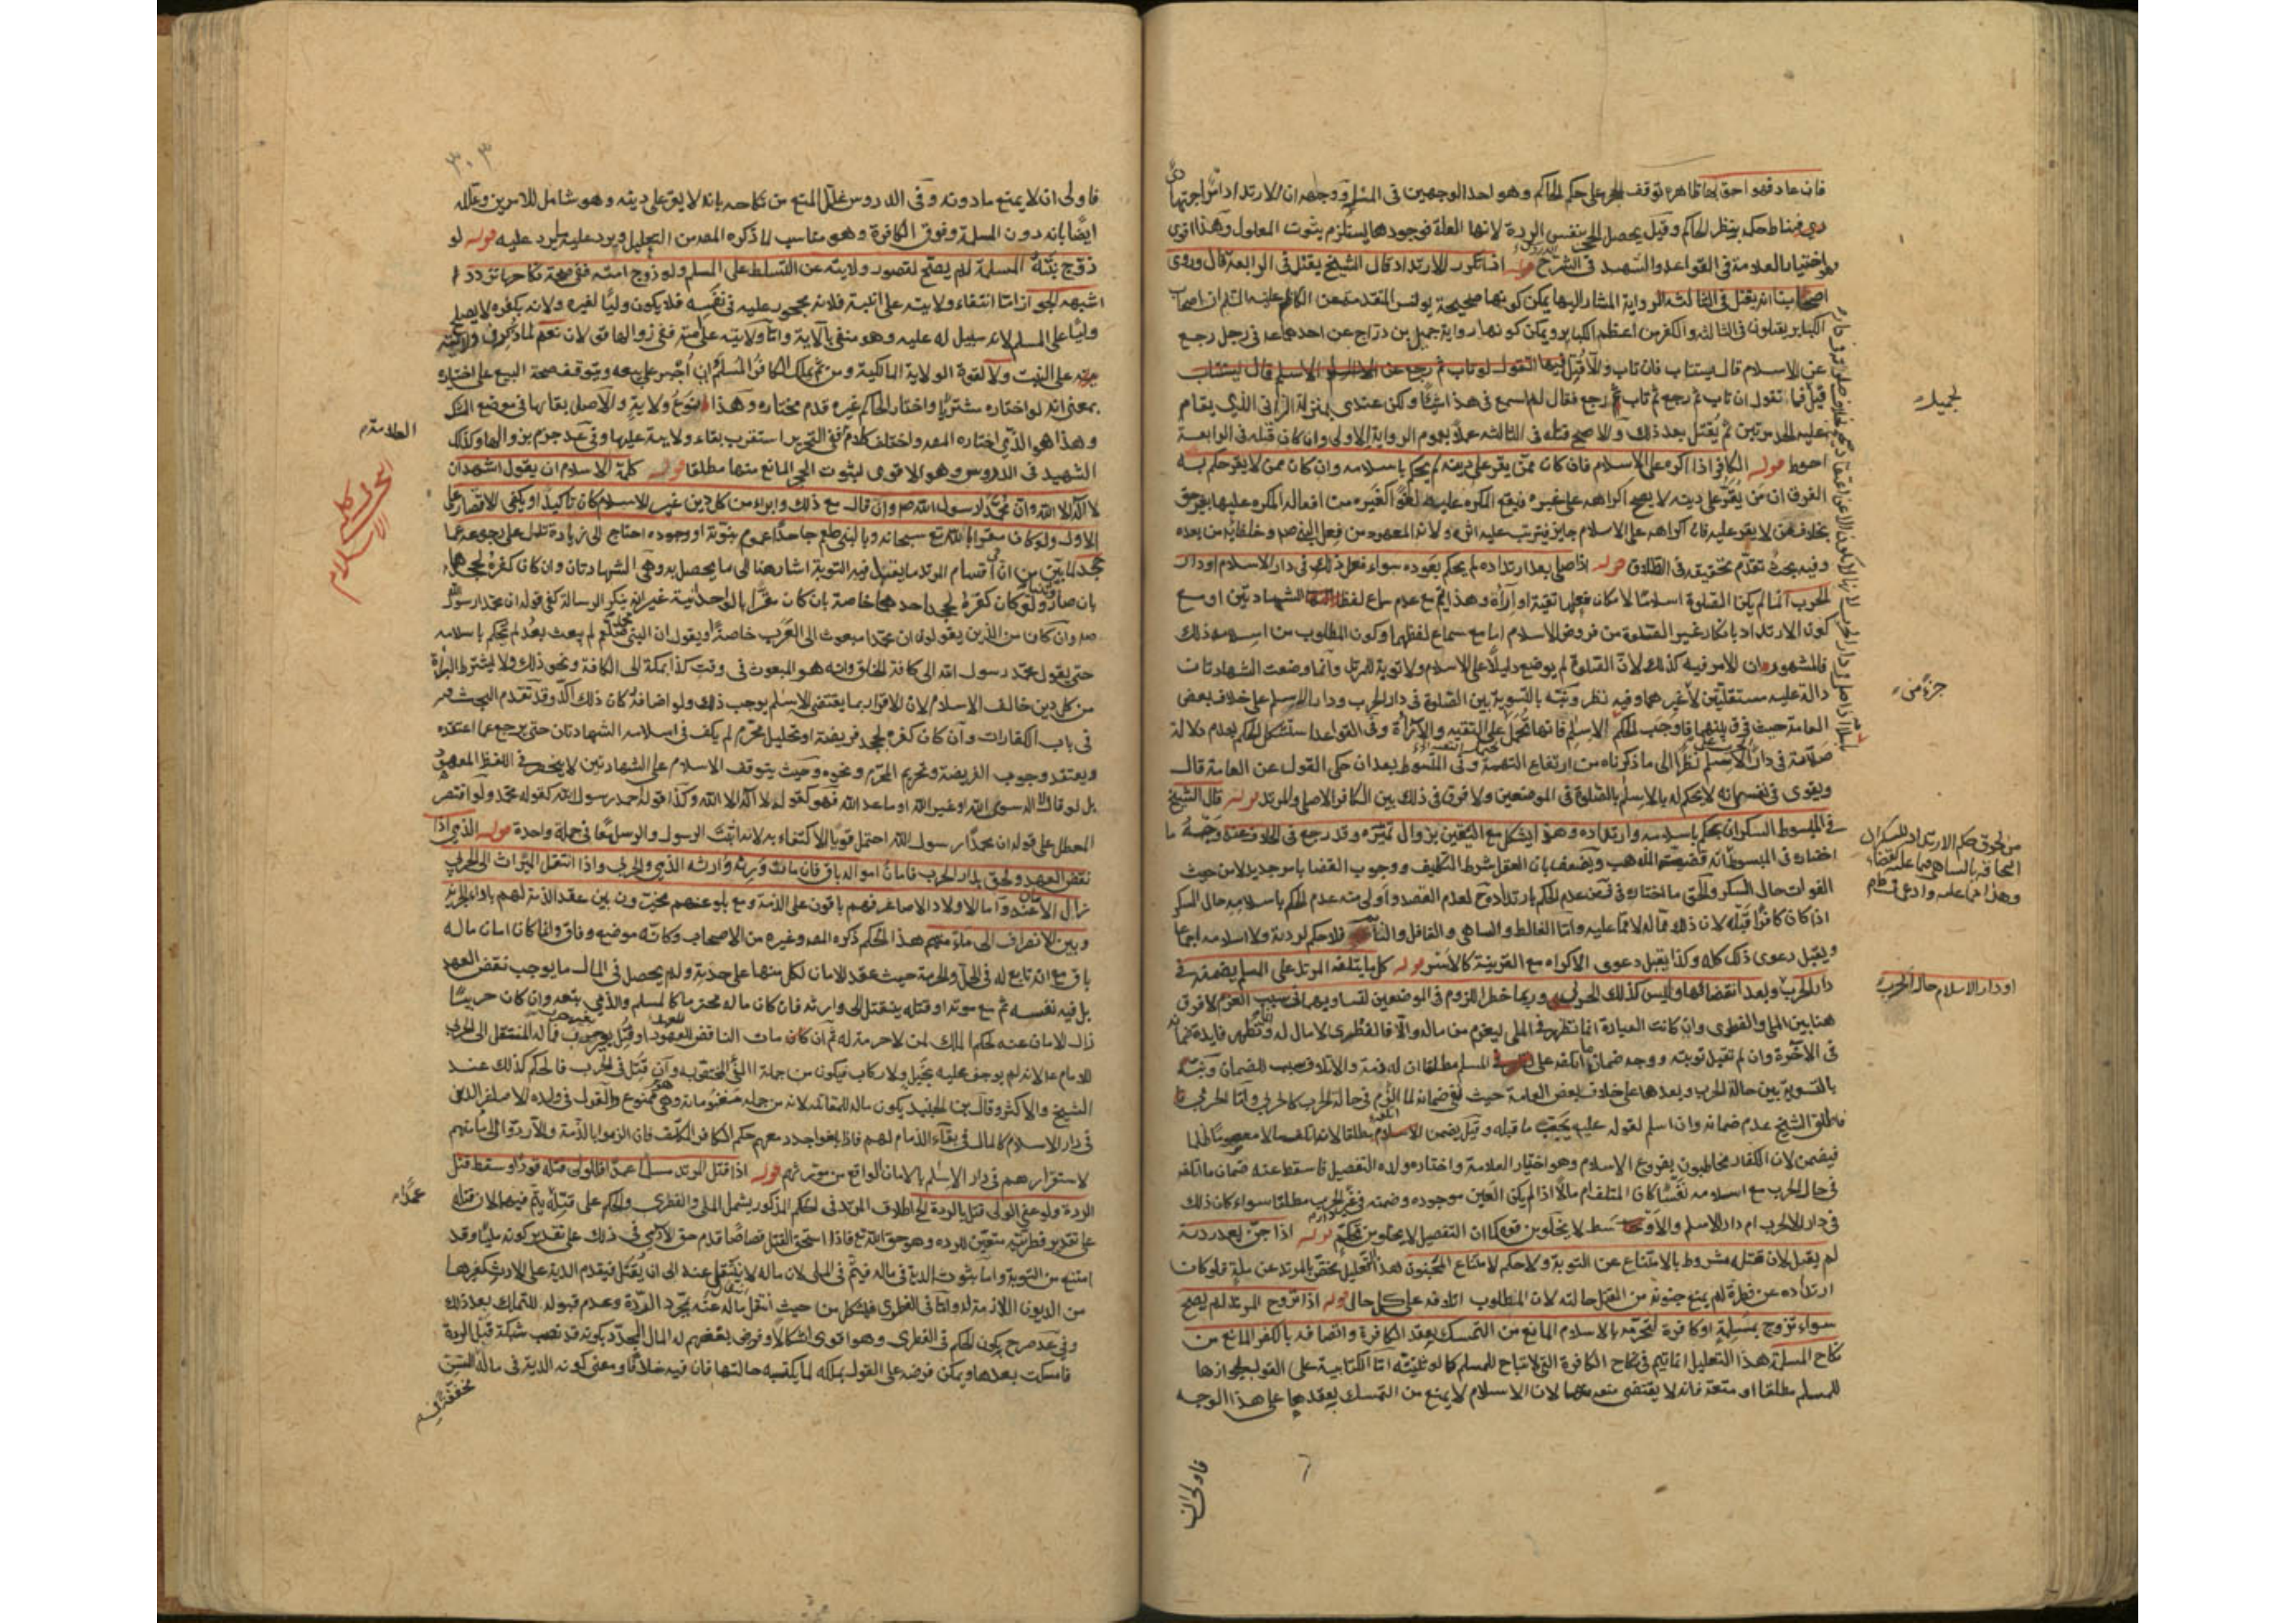 فان عاد فهو احق بها ظاهره توقف الحجر على حكم الحاكم وهو احد الوجهين في المسئلة ووجهه ان الارتداد اجتهادي
فيناط حكمه بنظر الحاكم وقيل يحصل الحجر بنفس الردة لانها العلة فوجودها يستلزم ثبوت المعلول وهذا اقوى
وهو اختيار العلامة في القواعد والشهيد في الشرح قوله اذا تكرر الارتداد قال الشيخ يقتل في الرابعة قال وروى
اصحابنا انه يقتل في الثالثة الرواية المشار اليها يمكن كونها صحيحة يونس المتقدمة عن الكاظم عليه السلم ان اصحاب
الكباير يقتلون في الثالثة والكفر من اعظم الكباير ويمكن كونها رواية جميل بن دراج عن احدهما ع في رجل رجع
عن الاسلام قال يستتاب فان تاب والا قتل
قيل فما تقول ان تاب ثم رجع ثم تاب ثم رجع فقال لم اسمع في هذا شيئا ولكن عندي بمنزلة الزاني الذي يقام
عليه الحد مرتين ثم يقتل بعد ذلك والاصح قتله في الثالثة عملا بعموم الرواية الاولى وان كان قتله في الرابعة
احوط قوله الكافر اذا اكره على الاسلام فان كان ممن يقر على دينه لم يحكم باسلامه وان كان ممن لا يقر حكم به
الفرق ان من يقر على دينه لا يصح اكراهه على غيره فيقع المكره عليه لغوا كغيره من افعال المكره عليها بغير حق
بخلاف من لا يقر عليه فان اكراهه على الاسلام جايز فيترتب عليه اثره ولانه المعهود من فعل النبي ص وخلفائه من بعده
وفيه بحث تقدم تحقيقه في الطلاق قوله اذا صلى بعد ارتداده لم يحكم بعوده سواء فعل ذلك في دار الاسلام او دار
الحرب انما لم يكن الصلوة اسلاما لامكان فعلها تقية او اراءة وهذا يتم مع عدم سماع لفظ الشهادتين او مع
كون الارتداد بانكار غير الصلوة من فروض الاسلام اما مع سماع لفظهما وكون المطلوب من اسلامه ذلك
فالمشهور ان الامر فيه كذلك لان الصلوة لم يوضع دليلا على الاسلام ولا توبة للمرتد وانما وضعت الشهادتان
دالة عليه مستقلتين لا غيرهما وفيه نظر ونبه بالتسوية بين الصلوة في دار الحرب ودار الاسلم على خلاف بعض
العامة حيث فرق بينهما فاوجب الحكم الاسلم
صلاته في دار الاسلم نظرا الى ما ذكرناه من ارتفاع التهمة وفي المبسوط بعد ان حكى القول عن العامة قال
ويقوى في نفسي انه لا يحكم له بالاسلم بالصلوة في الموضعين ولا فرق في ذلك بين الكافر الاصلي والمرتد قوله قال الشيخ
في المبسوط السكران يحكم باسلامه وارتداده وهذا يشكل مع اليقين بزوال تميزه وقد رجع في الخلاف
اختاره في المبسوط انه قضية المذهب ويضعف بان العقل شرط التكليف ووجوب القضا بامر جديد لا من حيث
الفوات حال السكر والحق ما اختاره في ف من عدم الحكم بارتداده ح لعدم القصد واولى منه عدم الحكم باسلامه حال السكر
اذا كان كافرا قبله لان ذلك مما له لا مما عليه واما الغالط والساهي والغافل والنائم فلا حكم لردته ولا اسلامه اجماعا
ويقبل دعوى ذلك كله وكذا يقبل دعوى الاكراه مع القرينة كالاسر قوله كل ما يتلفه المرتد على المسلم يضمنه في
دار الحرب وبعد انقضائها وليس كذلك الحربي وربما خطر اللزوم في الموضعين لتساويهما في سبب الغرم لا فرق
هنا بين الملي والفطري وان كانت العبارة انما تظهر في الملي ليغرم من ماله والا فالفطري لا مال له وتظهر فايدة ضمانه
في الاخرة وان لم تقبل توبته ووجه ضمان ما اتلفه على المسلم مطلقا ان له ذمة والاتلاف سبب الضمان ونبه
بالتسوية بين حالة الحرب وبعدها على خلاف بعض العامة حيث نفى ضمانه لما اتلف في حالة الحرب كالحربي واما الحربي
فاطلق الشيخ عدم ضمانه وان اسلم لقوله عليه يجب ما قبله وقيل يضمن مطلقا لاتلافه مالا معصوما ظلما
فيضمن لان الكفار مخاطبون بفروع الاسلام وهو اختيار العلامة واختار ولده التفصيل فاسقط عنه ضمان ما اتلفه
في حال الحرب مع اسلامه نفسا كان المتلف ام مالا اذا لم يكن العين موجودة وضمنه في غير الحرب مطلقا سواء كان ذلك
في دار الحرب ام دار الاسلم والاوسط لا يخلو من قوة كما ان التفصيل لا يخلو من تحكم قوله اذا جن بعد ردته
لم يقتل لان قتله مشروط بالامتناع عن التوبة ولا حكم لامتناع المجنون هذا التعليل يختص بالمرتد عن ملة فلو كان
ارتداده عن فطرة لم يمنع جنونه من القتل حالته لان المطلوب اتلافه على كل حال قوله اذا تزوج المرتد لم يصح
سواء تزوج بمسلمة او كافرة لتحرمه بالاسلام المانع من التمسك بعقد الكافرة واتصافه بالكفر المانع من
نكاح المسلمة هذا التعليل انما يتم في نكاح الكافرة التي لا تباح للمسلم كالوثنية اما الكتابية على القول بجوازها
للمسلم مطلقا او متعة فانه لا يقتضي منعه منها لان الاسلام لا يمنع من التمسك بعقدها على هذا الوجه
فاولى ان
لجميل
جزء من
من لحوق حكم الارتداد للسكران
او دار الاسلام حالة الحرب
٣٠٣
فاولى ان لا يمنع ما دونه وفي الدروس علل المنع من نكاحه بانه لا يقر على دينه وهو شامل للامرين وعلله
ايضا بانه دون المسلمة وفوق الكافرة وهو مناسب لما ذكره المص من التعليل ويرد عليه ما يرد عليه قوله لو
زوج بنته المسلمة لم يصح لقصور ولايته عن التسلط على المسلم ولو زوج امته ففي صحة نكاحها تردد
اشبهه الجواز اما انتفاء ولايته على ابنته فلانه محجور عليه في نفسه فلا يكون وليا لغيره ولانه بكفره لا يصلح
وليا على المسلم لانه سبيل له عليه وهو منفي بالآية واما ولايته على امته ففي زوالها قولان نعم لما ذكر
على البنت ولا لقوة الولاية المالكية ومن ثم يملك الكافر المسلم وان اجبر على بيعه ويتوقف صحة البيع على اختياره
بمعنى انه لو اختاره مشتريا واختار الحاكم غيره قدم مختاره وهذا نوع ولاية والاصل بقاؤها في موضع الشك
وهذا هو الذي اختاره المص واختلف كلام ففي التحرير استقرب بقاء ولايته عليها وفي عد جزم بزوالها وكذلك
الشهيد في الدروس وهو الاقوى لثبوت الحجر المانع منها مطلقا قوله كلمة الاسلام ان يقول اشهد ان
لا اله الا الله وان محمدا رسول الله ص وان قال مع ذلك وابرا من كل دين غير الاسلام كان تاكيدا ويكفي الاقتصار على
الاول ولو كان مقرا بالله تع سبحانه وبالنبي صلعم جاحدا عموم نبوته او وجوده احتاج الى زيادة تدل على رجوعه عما
جحد لما بين ان من اقسام المرتد ما يقبل فيه التوبة اشار هنا الى ما يحصل به وهي الشهادتان ان كان كفره بجحدهما
ولو كان كفره بجحد احدهما خاصة بان كان مقرا بالواحدانية غير انه ينكر الرسالة كفى قوله ان محمدا رسول الله
ص وان كان من الذين يقولون ان محمدا مبعوث الى العرب خاصة او يقول ان النبي محمد لم يبعث بعد لم يحكم باسلامه
حتى يقول محمد رسول الله الى كافة الخلق وانه هو المبعوث في وقت كذا بمكة الى الكافة ونحو ذلك ولا يشترط البراة
من كل دين خالف الاسلام لان الاقرار بما يقتضي الاسلم يوجب ذلك ولو اضافه كان ذلك آكد وقد تقدم البحث فيه
في باب الكفارات وان كان كفره بجحد فريضة او تحليل محرم لم يكف في اسلامه الشهادتان حتى يرجع عما اعتقده
ويعتقد وجوب الفريضة وتحريم المحرم ونحوه وحيث يتوقف الاسلام على الشهادتين لا ينحصر في اللفظ المعهود
بل لو قال لا اله سوى الله او غير الله او ما عدا الله فهو كقوله لا اله الا الله وكذا قوله احمد رسول الله كقوله محمد ولو اقتصر
المعطل على قوله ان محمدا رسول الله احتمل قويا الاكتفاء به لانه اثبت الرسول والرسل معا في جملة واحدة قوله الذمي اذا
نقض العهد ولحق بدار الحرب فامان امواله باق فان مات ورثه وارثه الذمي والحربي واذا انتقل الميراث الى الحربي
زال الامان عنه واما الاولاد الاصاغر فهم باقون على الذمة ومع بلوغهم مخيرون بين عقد الذمة لهم باداء الجزية
وبين الانصراف الى مامنهم هذا الحكم ذكره المص وغيره من الاصحاب وكانه موضع وفاق وانما كان امان ماله
باق مع انه تابع له في الحل والحرمة حيث عقد الامان لكل منهما على حدته ولم يحصل في المال ما يوجب نقض العهد
بل في نفسه ثم مع موته او قتله ينتقل الى وارثه فان كان ماله محترما كالمسلم والذمي بقى وان كان حربيا
زال الامان عنه لحكم الملك لمن لا حرمة له ثم ان كان مات الناقض للعهد او قتل فماله المنتقل الى الحربي
للامام ع لانه لم يوجف عليه بخيل ولا ركاب فيكون من جملة الفئ المختص به وان قتل في الحرب فالحكم كذلك عند
الشيخ والاكثر وقال بن الجنيد يكون ماله للمقاتلة لانه من جملة مغنوماته وهو ممنوع والقول في ولده الاصاغر الذين
في دار الاسلام كالمال في بقاء الذمام لهم فاذا بلغوا جدد معهم حكم الكافر المكلف فان التزموا بالذمة والا ردوا الى مامنهم
لاستقرارهم في دار الاسلم بالامان الواقع من مورثهم قوله اذا قتل المرتد مسلما عمدا فللولي قتله قودا وسقط قتل
الردة ولو عفى الولي قتل بالردة الخ اطلاق المرتد في الحكم المذكور يشمل الملي والفطري والحكم على قتله يتم فيهما لان قتله
على تقدير فطريته متعين للردة وهو حق الله تع فاذا استحق القتل قصاصا قدم حق الآدمي في ذلك على تقدير كونه مليا وقد
امتنع من التوبة واما ثبوت الدية في ماله فيتم في الملي لان ماله لا ينتقل عنه الى ان يقتل فيقدم الدية على الارث كغيرها
من الديون اللازمة له واما في الفطري فيشكل من حيث انتقل ماله عنه بمجرد الردة وعدم قبوله للتملك بعد ذلك
وفي عد صرح بكون الحكم في الفطري وهو اقوى اشكالا وفرض بعضهم له المال المتجدد بكونه قد نصب شبكة قبل الردة
فامسكت بعدها ويمكن فرضه على القول بملكه لما يكتسبه حالتها فان فيه خلافا ومعنى كونه الدية في ماله
العلامة
كلمة
الاسلام
عمدا